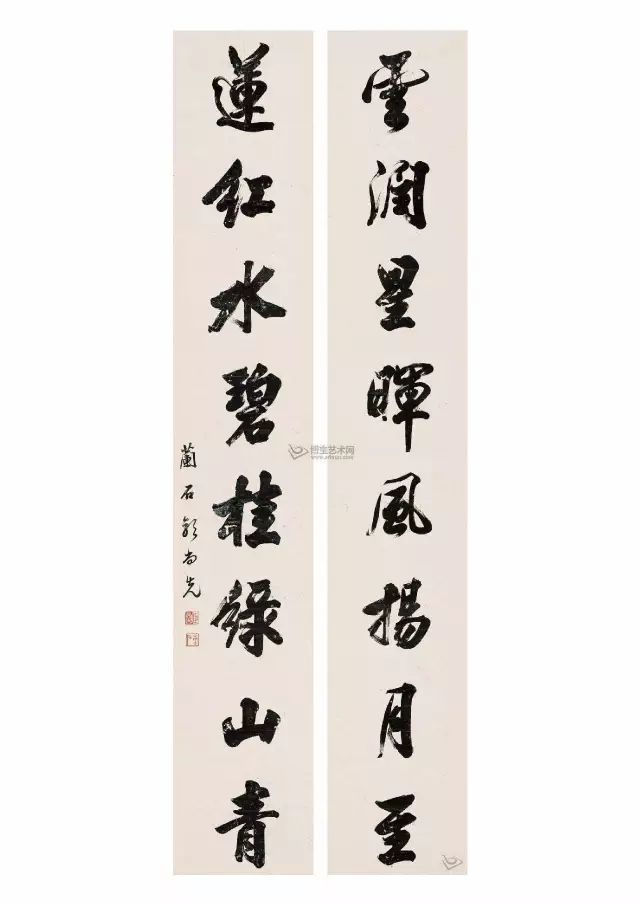 雲潤星暉風揚月至
蓮紅水碧桂綠山青
蘭石郭尚先
博宝艺术网